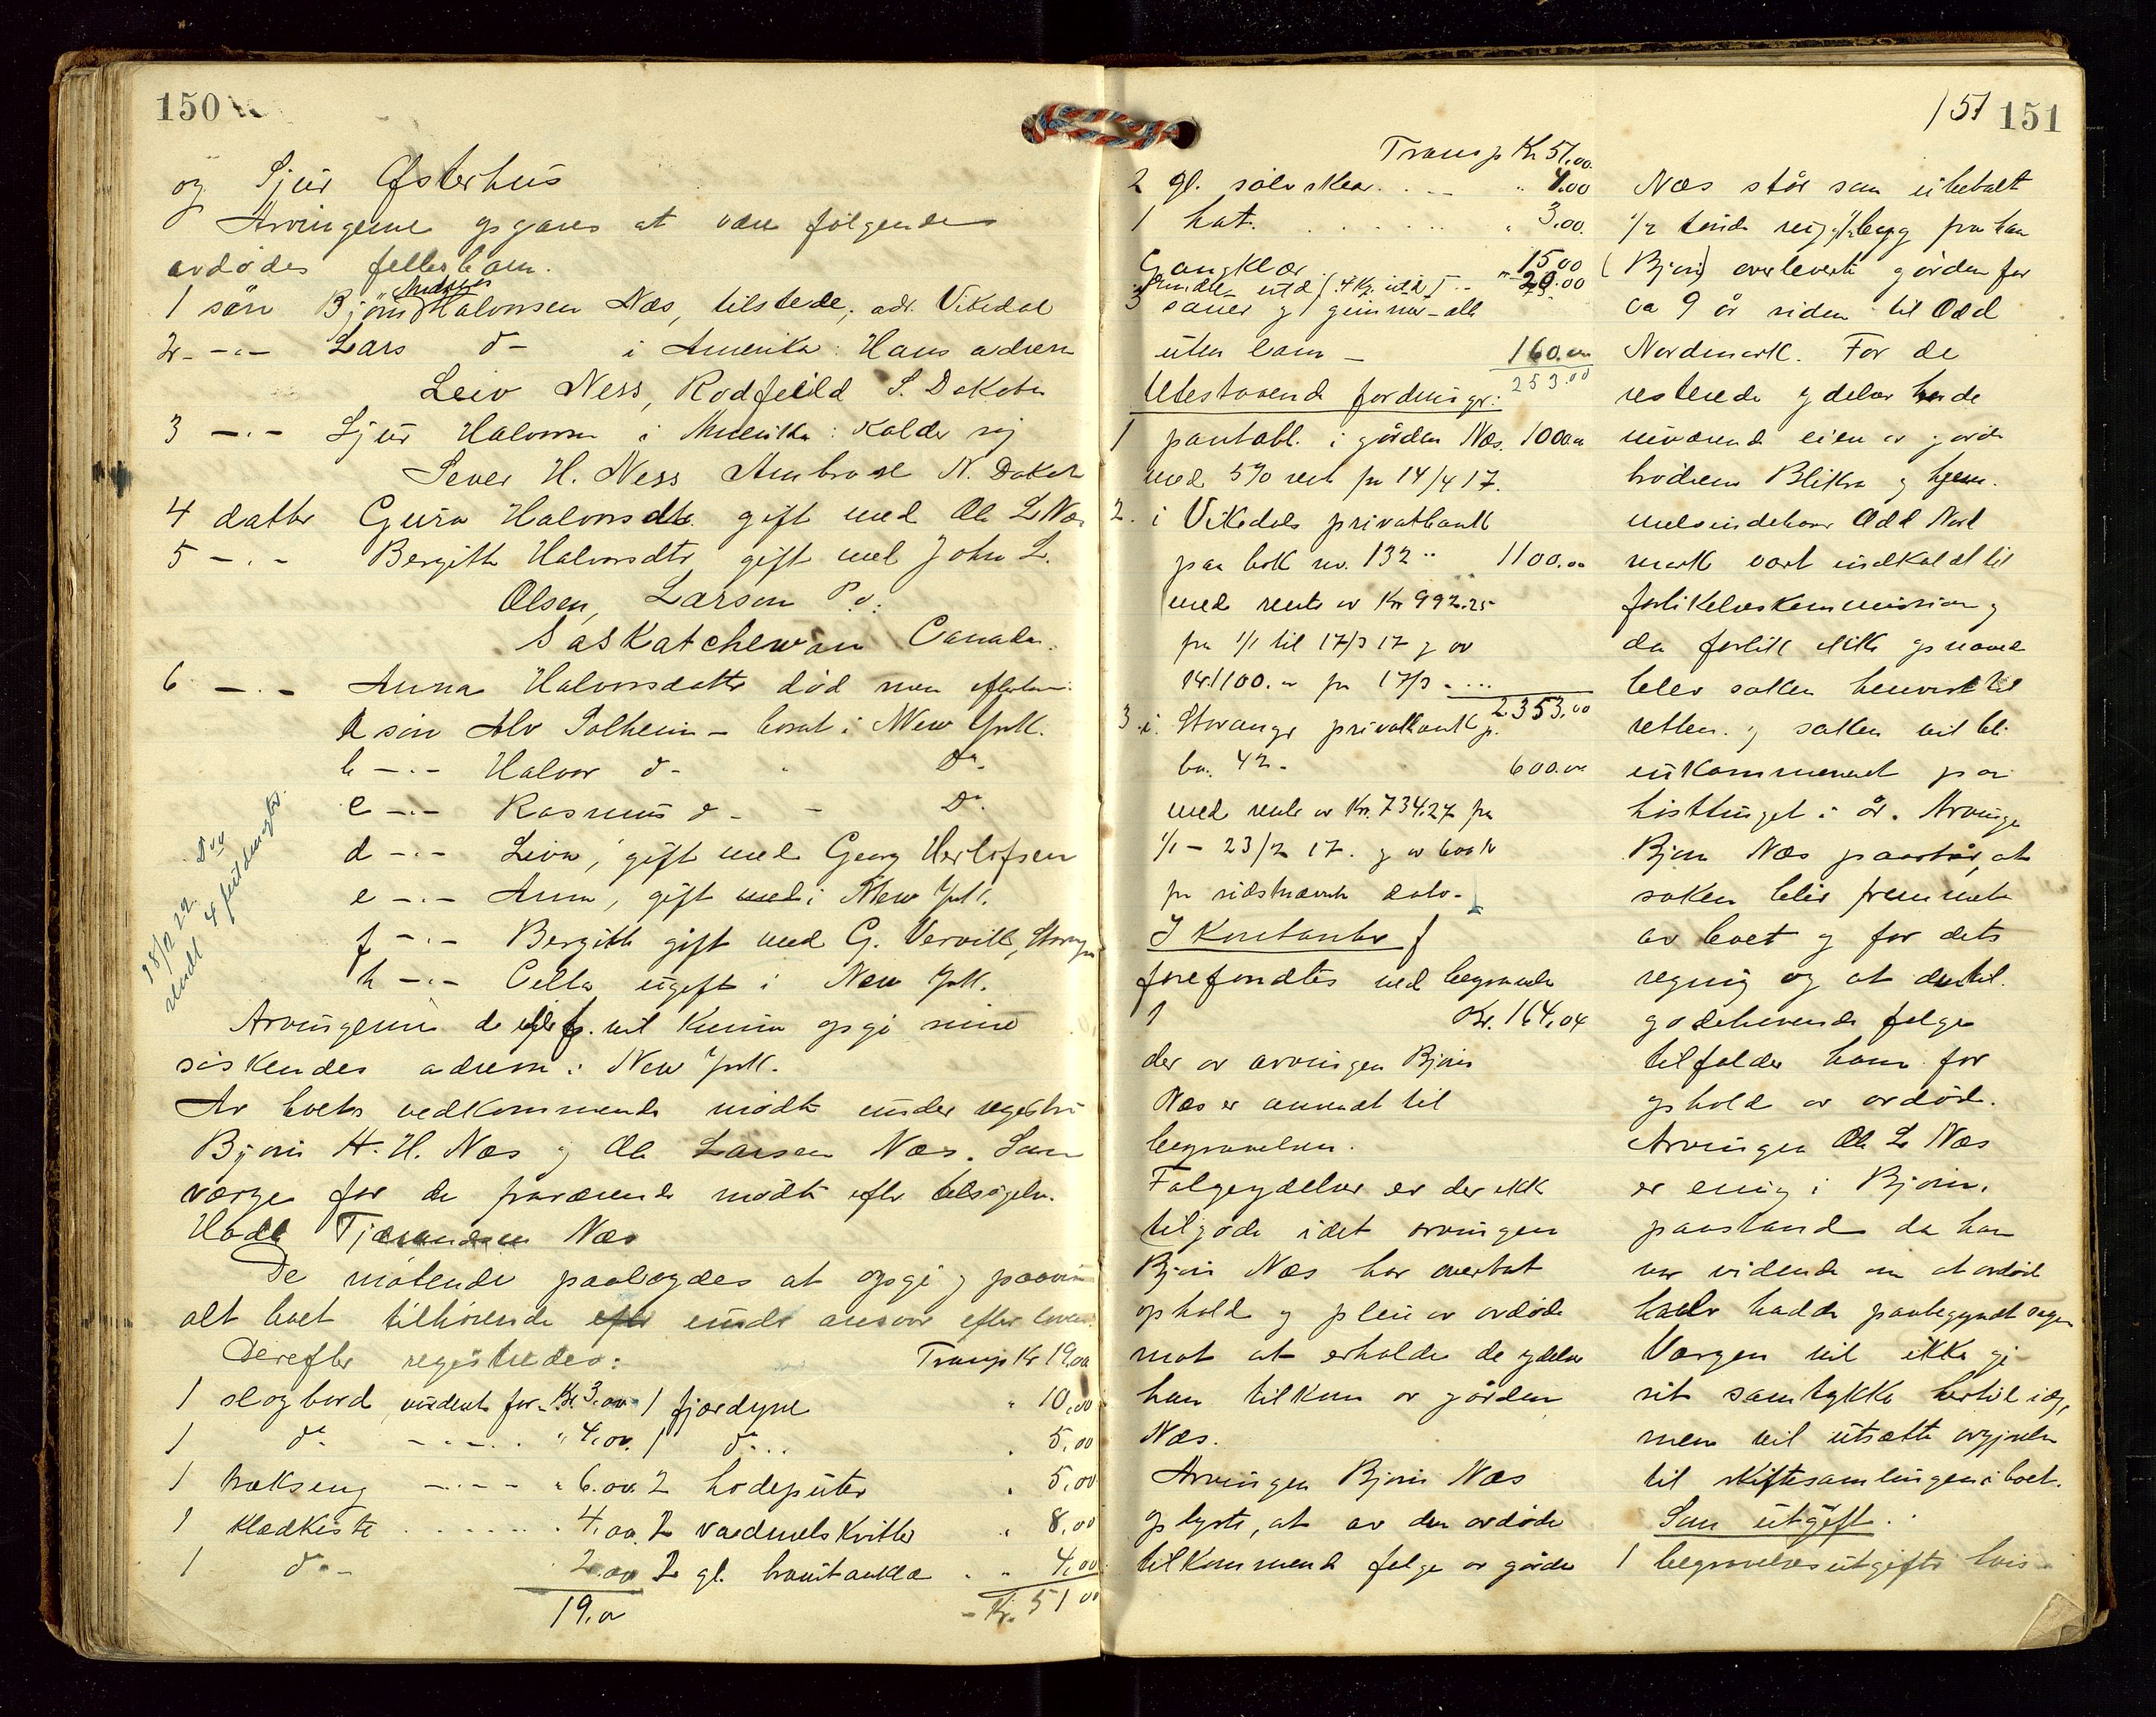 150
og Sjur Østerhus
Arvingerne opgaves at være følgende
avdødes fellesbarn.
Andreas
1 søn Bjørn Halvorsen Næs, tilstede, adr. Vikedal
2 -"- Lars do- i Amerika: Hans adresse
Leiv Ness, Rodfeild S. Dakota
3 -"- Sjur Halvorsen i Amerika: Kalder sig
Sever H. Ness Ambrose N. Dakota
4 datter Gura Halvorsdtr. gift med Ole L Næs
5 -"- Bergitte Halvorsdtr gift med John L.
Olsen, Larson P.o.
Saskatchewan Canada.
6 -"- Anna Halvorsdatter død men efterlev.
a søn Alv Solheim - bosat i New York.
b -"- Halvor do- " Do-
c -"- Rasmus do- - Do.
d -"- Lina, gift med Georg Herlofsen
e -"- Anna, gift med i New York.
f -"- Bergitte gift med G. Vervik, Stavanger
h -"- Cella ugift i New York.
18/12 22. Due
sendt 4 festdangter.
Arvingerne d og f. vil kunne opgi sine
søskendes adresse i New York.
Av boets vedkommende mødte under registr.
Bjørn H. H. Næs og Ole Larsen Næs. Som
værge for de fraværende mødte efter tilsigelse
Hadle Tjerandsen Næs
De møtende paalagdes at opgi og paavise
alt boet tilhørende efter under ansvar efter loven.
Derefter registredes: Transp Kr 19.00
1 slagbord vurdert for Kr. 3.00 1 fjærdyne " 10.00
1 do- -"- " 4.00. 1 do... " 5.00
1 trækseng -"- " 6.00. 2 hodeputer " 5.00
1 klædkiste ..... " 4.00. 2 vadmelskvitler " 8.00
1 do- 2.00 2 gl. branitankla " 4.00
19.00 - Kr. 51 00
151 151
Transp Kr 51.00.
2 gl. sølvskear. " 4.00
1 hat. ...... " 3.00.
Gangklær 15.00
20.00
3 sauer og gimmer - alle
uten lam - 160.00
253.00
Utestaaende fordringer:
1 pantobl. i gården Næs. 1000.00
med 5% rent fra 14/4 17.
2. i Vikedals privatbank
paa bok no. 132 " 1100.00
med rente av Kr 992.25
fra 1/1 til 17/3 17 og av
Kr 1100.00 fra 17/3 - ...
2353.00
3. i Stavanger privatbank p.
bn. 42 - 600.00
med rente av Kr. 734.27 fra
1/1 - 23/2 17. og av 600 kr
fra sidstnævnte dato.
I Kontanter
forefandtes ved begravelse
1 Kr. 164.04
der av arvingen Bjørn
Næs er anvendt til
begravelsen.
Følgeydelser er der ikke
tilgode idet arvingen
Bjørn Næs har overtat
ophold og pleie av avdøde
mot at erholde de ydelser
han tilkom av gården
Næs.
Arvingen Bjørn Næs
oplyste, at av den avdøde
tilkommende følge av gården
Næs står som ubetalt
1/2 tønde rug, 1/2 bygg fra han
(Bjørn) overleverte gården for
ca 9 år siden til Odd
Nordmark. For de
resterede ydelser hvorde
nuværende eiere av gården
brødrene Blikra og hjem-
melsindehaver Odd Nord
mark vært indkaldt til
forlikelseskommission og
da forlik ikke opnaaed
blev saken henvist til
retten. og saken vil bli
inkommenad paa
høsttinget i år. Arvinge
Bjørn Næs paastår, at
saken blir fremmet
av boet og for dets
regning og at den til-
godehavende følge
tilfalder ham for
ophold av avdøde.
Arvingen Ole L Næs
er enig i Bjørns
paastand da han
var vidende om at avdøde
selv hadde paabegyndt sagen
Værgen vil ikke gi
sit samtykke hertil idag,
men vil utsætte avgjørelse
til skiftesamlingen i boet.
Som utgift.
1 begravelsesutgifter hvis